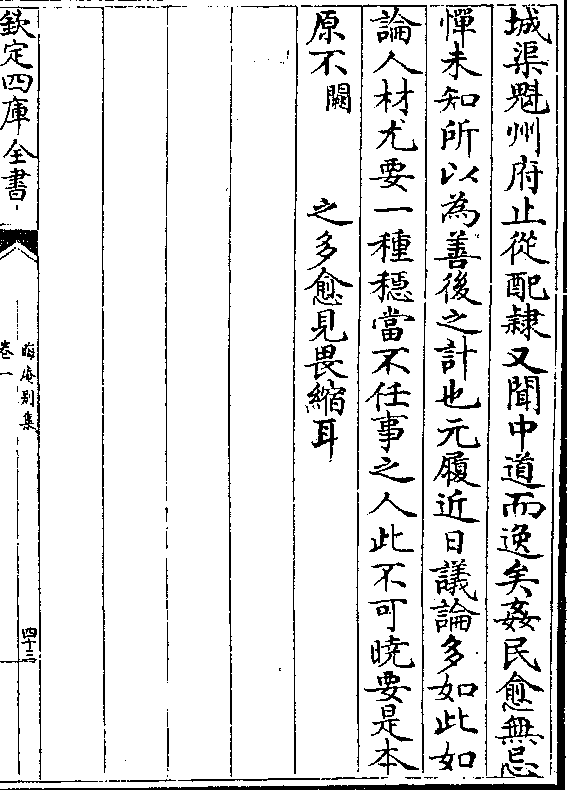 城渠魁州府止從配隸又聞中道而逸矣姦民愈無忌
憚未知所以為善後之計也元履近日議論多如此如
論人材尤要一種穩當不任事之人此不可曉要是本
原不闕 之多愈見畏縮耳
欽定四庫全書
晦庵別集
卷一
四十三